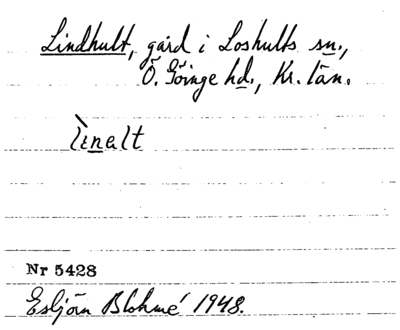 Lindhult, gård i Loshults sn.,
Ö. Göinge hd., Kr. län.
lìnalt
Nr 5428
Esbjörn Blohmé 1948.